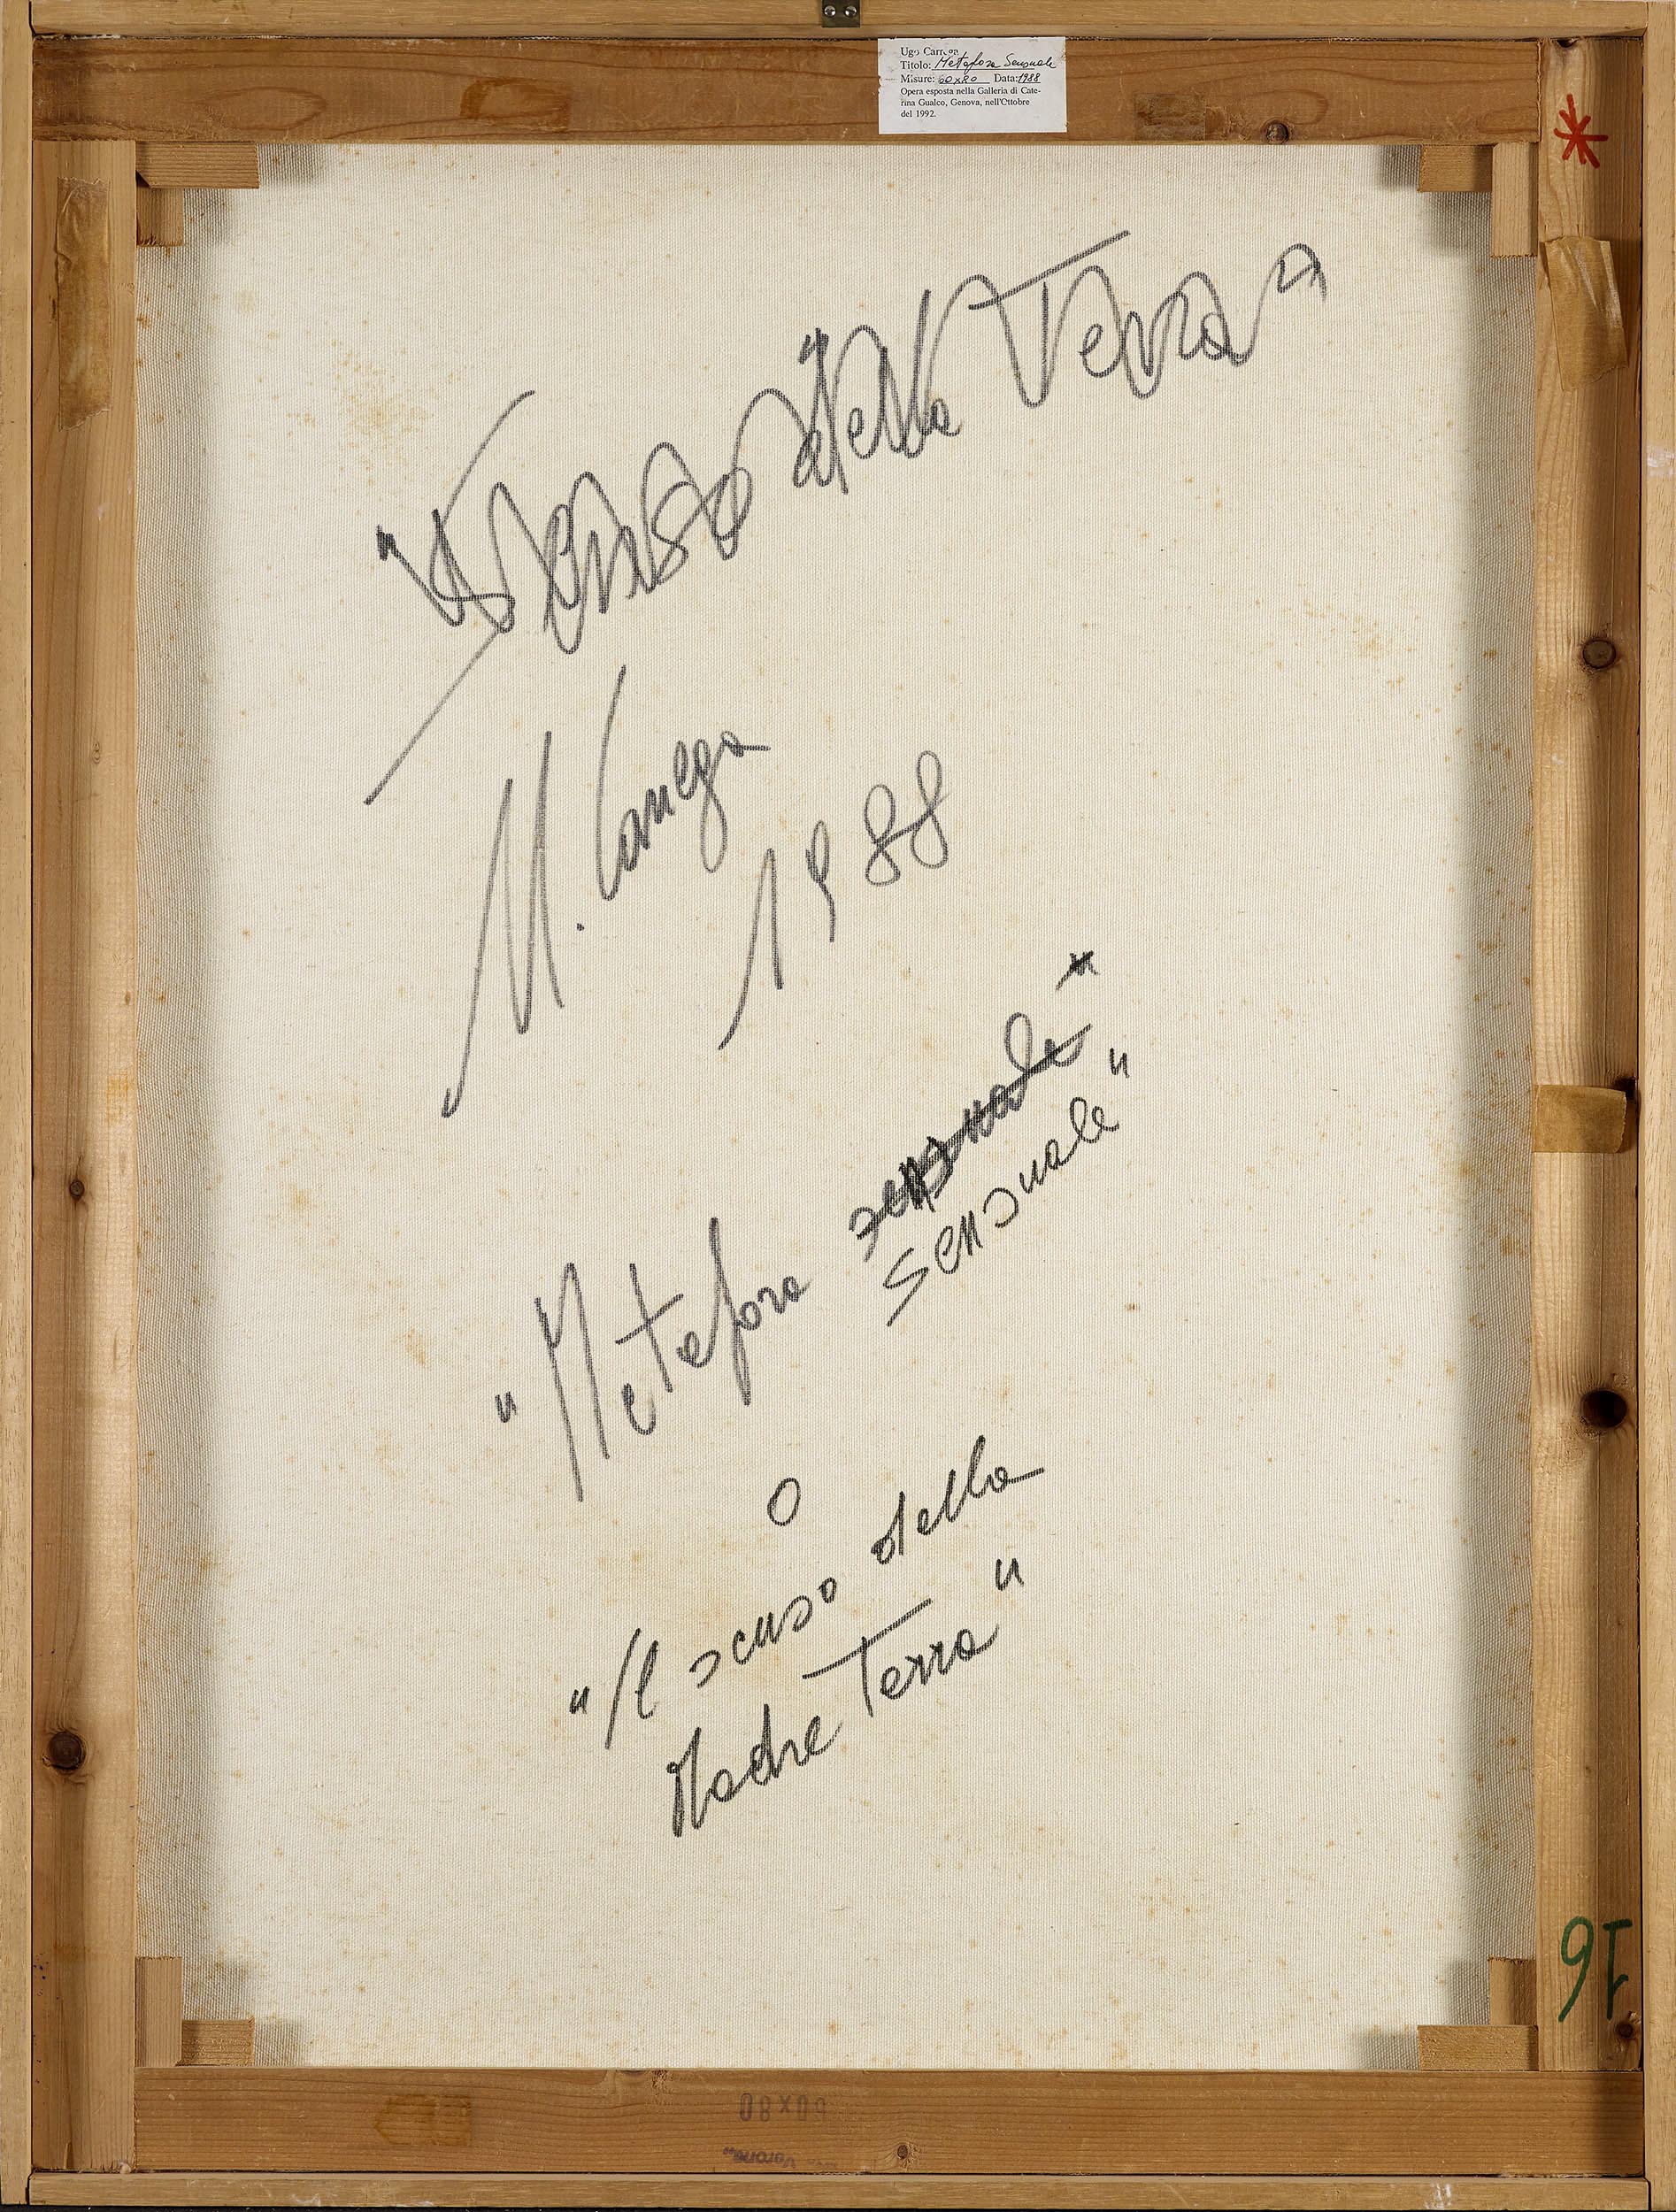 Ugo Carrega
Titolo: Metafora Sensuale
Misure: 60x80 Data: 1988
Opera esposta nella Galleria di Cate-
rina Gualco, Genova, nell'Ottobre
del 1992.
*
senso della Terra"
Carrega
1988
"Metafora sensuale *
sensuale"
o
"Il senso della
Madre Terra"
16
60X80